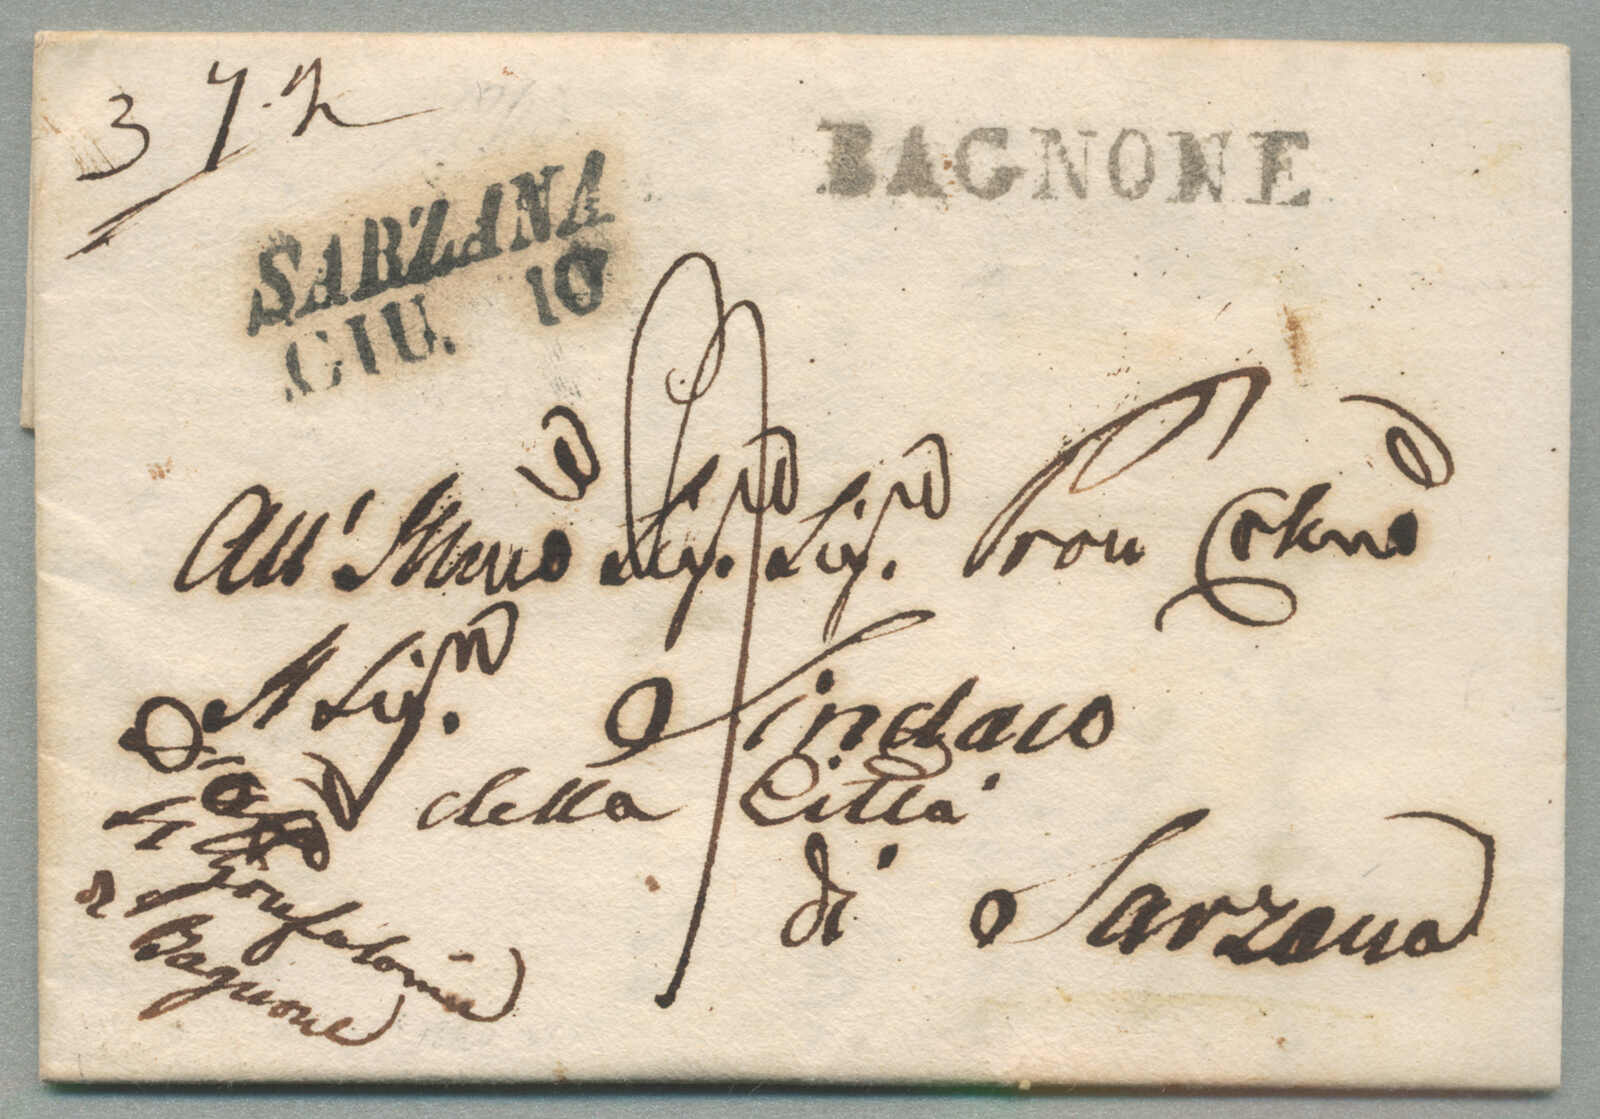 3 7.2
BAGNONE
SARZANA
GIU. 10
All' Illmo Sigre Sigre Pron Colmo
Il Sigr Sindaco
della Città
di Sarzana
Il Gonfaloniere
di Bagnone